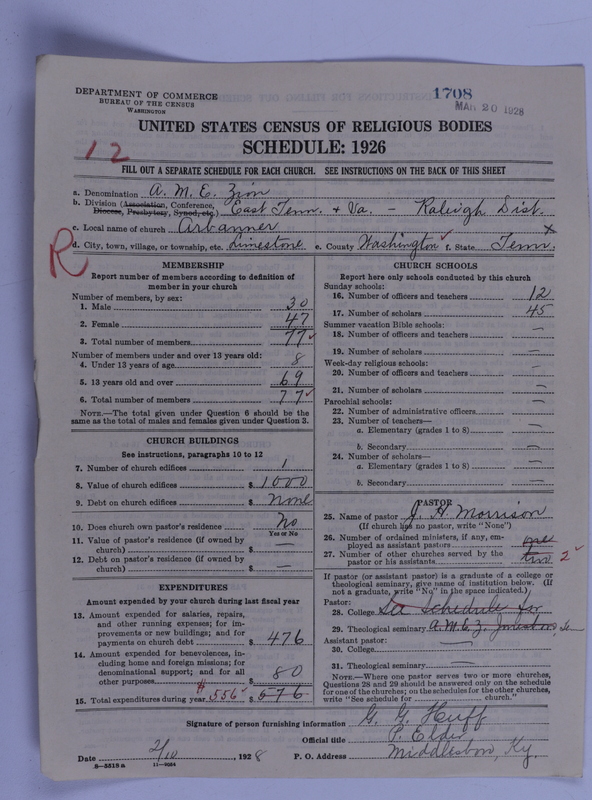 DEPARTMENT OF COMMERCE
BUREAU OF THE CENSUS
WASHINGTON
1708
MAR 20 1928
UNITED STATES CENSUS OF RELIGIOUS BODIES
12
SCHEDULE: 1926
FILL OUT A SEPARATE SCHEDULE FOR EACH CHURCH. SEE INSTRUCTIONS ON THE BACK OF THIS SHEET
a. Denomination A. M. E. Zion
b. Division (Association, Conference, Diocese, Presbytery, Synod, etc.) East Tenn. + Va. - Raleigh Dist.
c. Local name of church Arbanner
R
d. City, town, village, or township, etc. Limestone e. County Washington f. State Tenn.
MEMBERSHIP
Report number of members according to definition of
member in your church
Number of members, by sex:
1. Male 30
2. Female 47
3. Total number of members 77
Number of members under and over 13 years old:
4. Under 13 years of age 8
5. 13 years old and over 69
6. Total number of members 77
NOTE.—The total given under Question 6 should be the
same as the total of males and females given under Question 3.
CHURCH BUILDINGS
See instructions, paragraphs 10 to 12
7. Number of church edifices 1
8. Value of church edifices $ 1000
9. Debt on church edifices $ None
10. Does church own pastor's residence No
Yes or No
11. Value of pastor's residence (if owned by
church) $ —
12. Debt on pastor's residence (if owned by
church) $ —
EXPENDITURES
Amount expended by your church during last fiscal year
13. Amount expended for salaries, repairs,
and other running expenses; for im-
provements or new buildings; and for
payments on church debt $ 476
14. Amount expended for benevolences, in-
cluding home and foreign missions; for
denominational support; and for all
other purposes $ 80
15. Total expenditures during year $556 $ 576
CHURCH SCHOOLS
Report here only schools conducted by this church
Sunday schools:
16. Number of officers and teachers 12
17. Number of scholars 45
Summer vacation Bible schools:
18. Number of officers and teachers —
19. Number of scholars —
Week-day religious schools:
20. Number of officers and teachers —
21. Number of scholars —
Parochial schools:
22. Number of administrative officers —
23. Number of teachers—
a. Elementary (grades 1 to 8) —
b. Secondary —
24. Number of scholars—
a. Elementary (grades 1 to 8) —
b. Secondary —
PASTOR
25. Name of pastor J. H. Morrison
(If church has no pastor, write "None")
26. Number of ordained ministers, if any, em-
ployed as assistant pastors one
27. Number of other churches served by the
pastor or his assistants two 2
If pastor (or assistant pastor) is a graduate of a college or
theological seminary, give name of institution below. (If
not a graduate, write "No" in the space indicated.)
Pastor:
28. College See schedule for
29. Theological seminary A. M. E. Z.
Assistant pastor:
30. College —
31. Theological seminary —
NOTE.—Where one pastor serves two or more churches,
Questions 28 and 29 should be answered only on the schedule
for one of the churches; on the schedules for the other churches,
write "See schedule for church."
Signature of person furnishing information G. G. Huff
Official title P. Elder
Date 2/10, 1928 P. O. Address Middlesboro, Ky.
8—5318a 11—9084